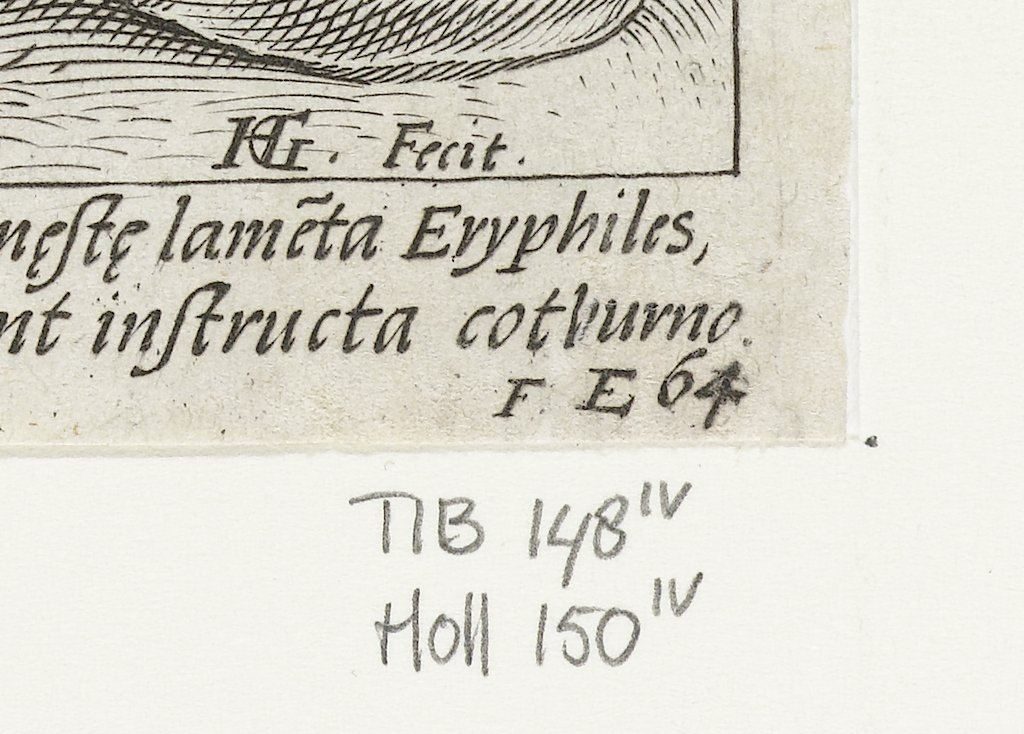 HG. Fecit.
nęſtę lamẽta Eryphiles,
nt inſtructa cothurno.
F E 64
TIB 148 IV
Holl 150 IV